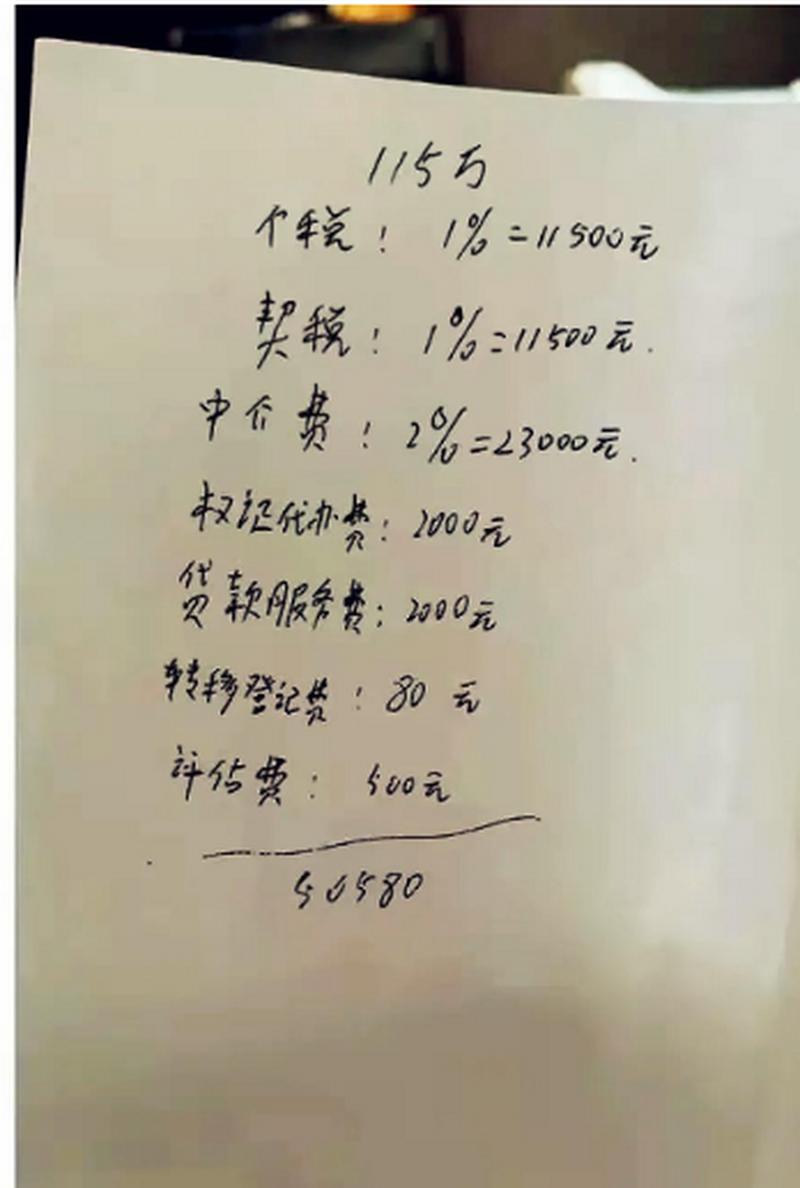 115万
个税: 1%=11500元
契税: 1%=11500元.
中介费: 2%=23000元.
权证代办费: 2000元
贷款服务费: 2000元
转移登记费: 80元
评估费: 500元
50580